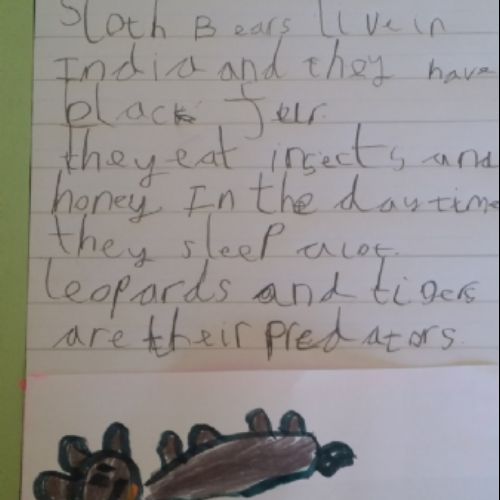 Sloth Bears live in
India and they have
black fur.
they eat insects and
honey. In the daytime
they sleep alot.
leopards and tigers
are their predators.